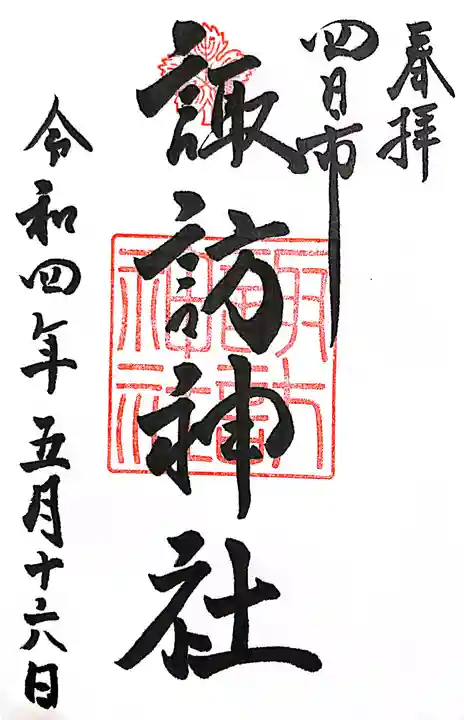 奉拝
四日市
諏訪神社
令和四年五月十六日
諏訪神社